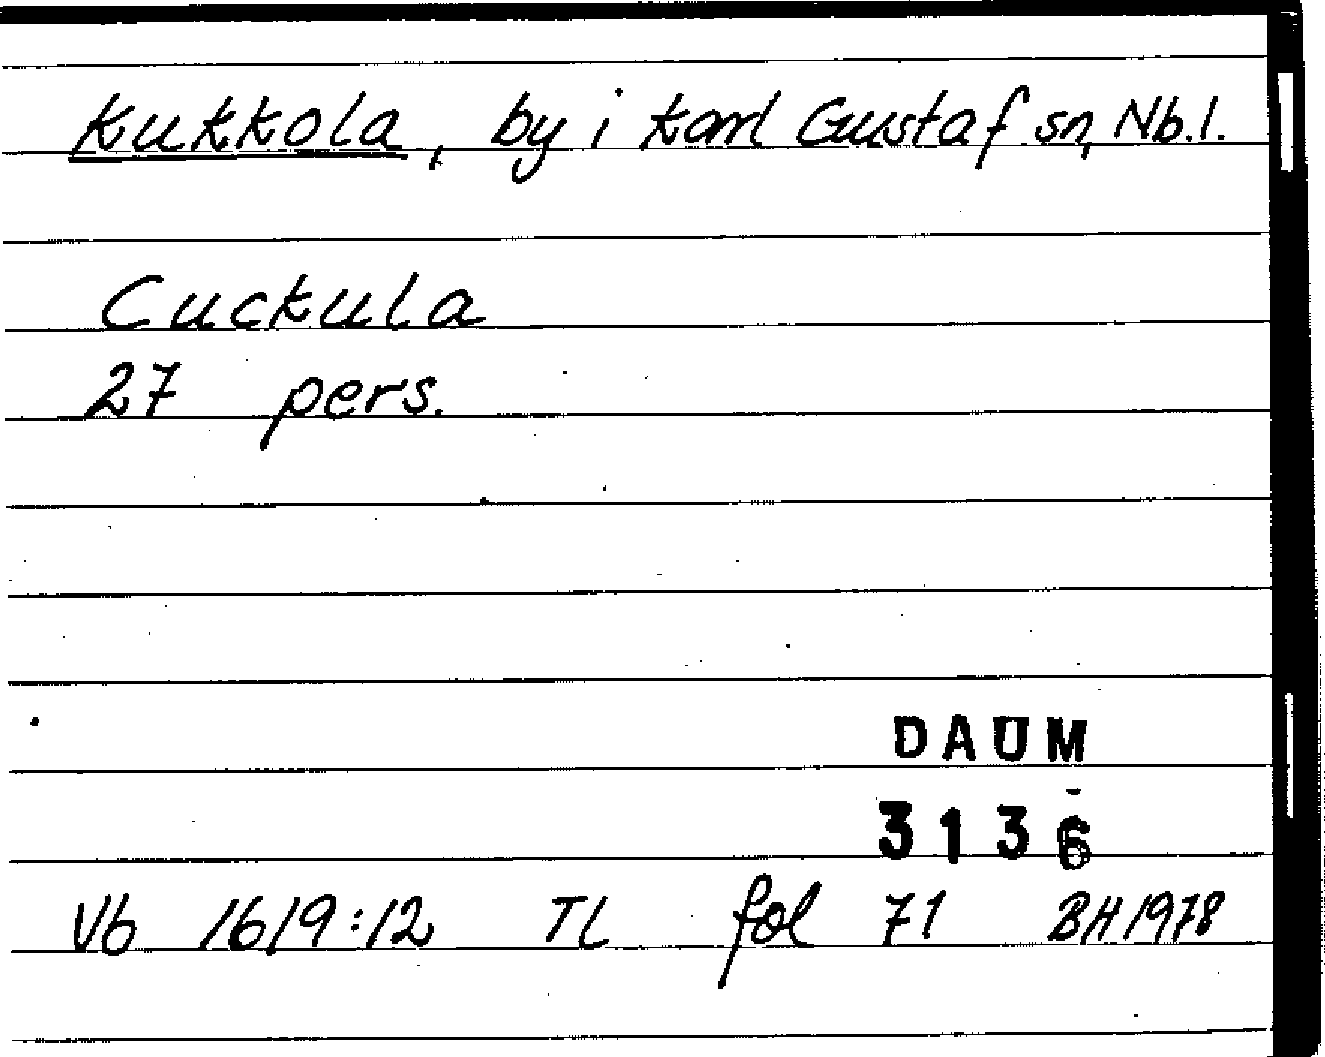 Kukkola, by i Karl Gustaf sn, Nb.l.
Cuckula
27 pers.
DAUM
3136
Vb 1619:12 TL fol 71 BH 1978